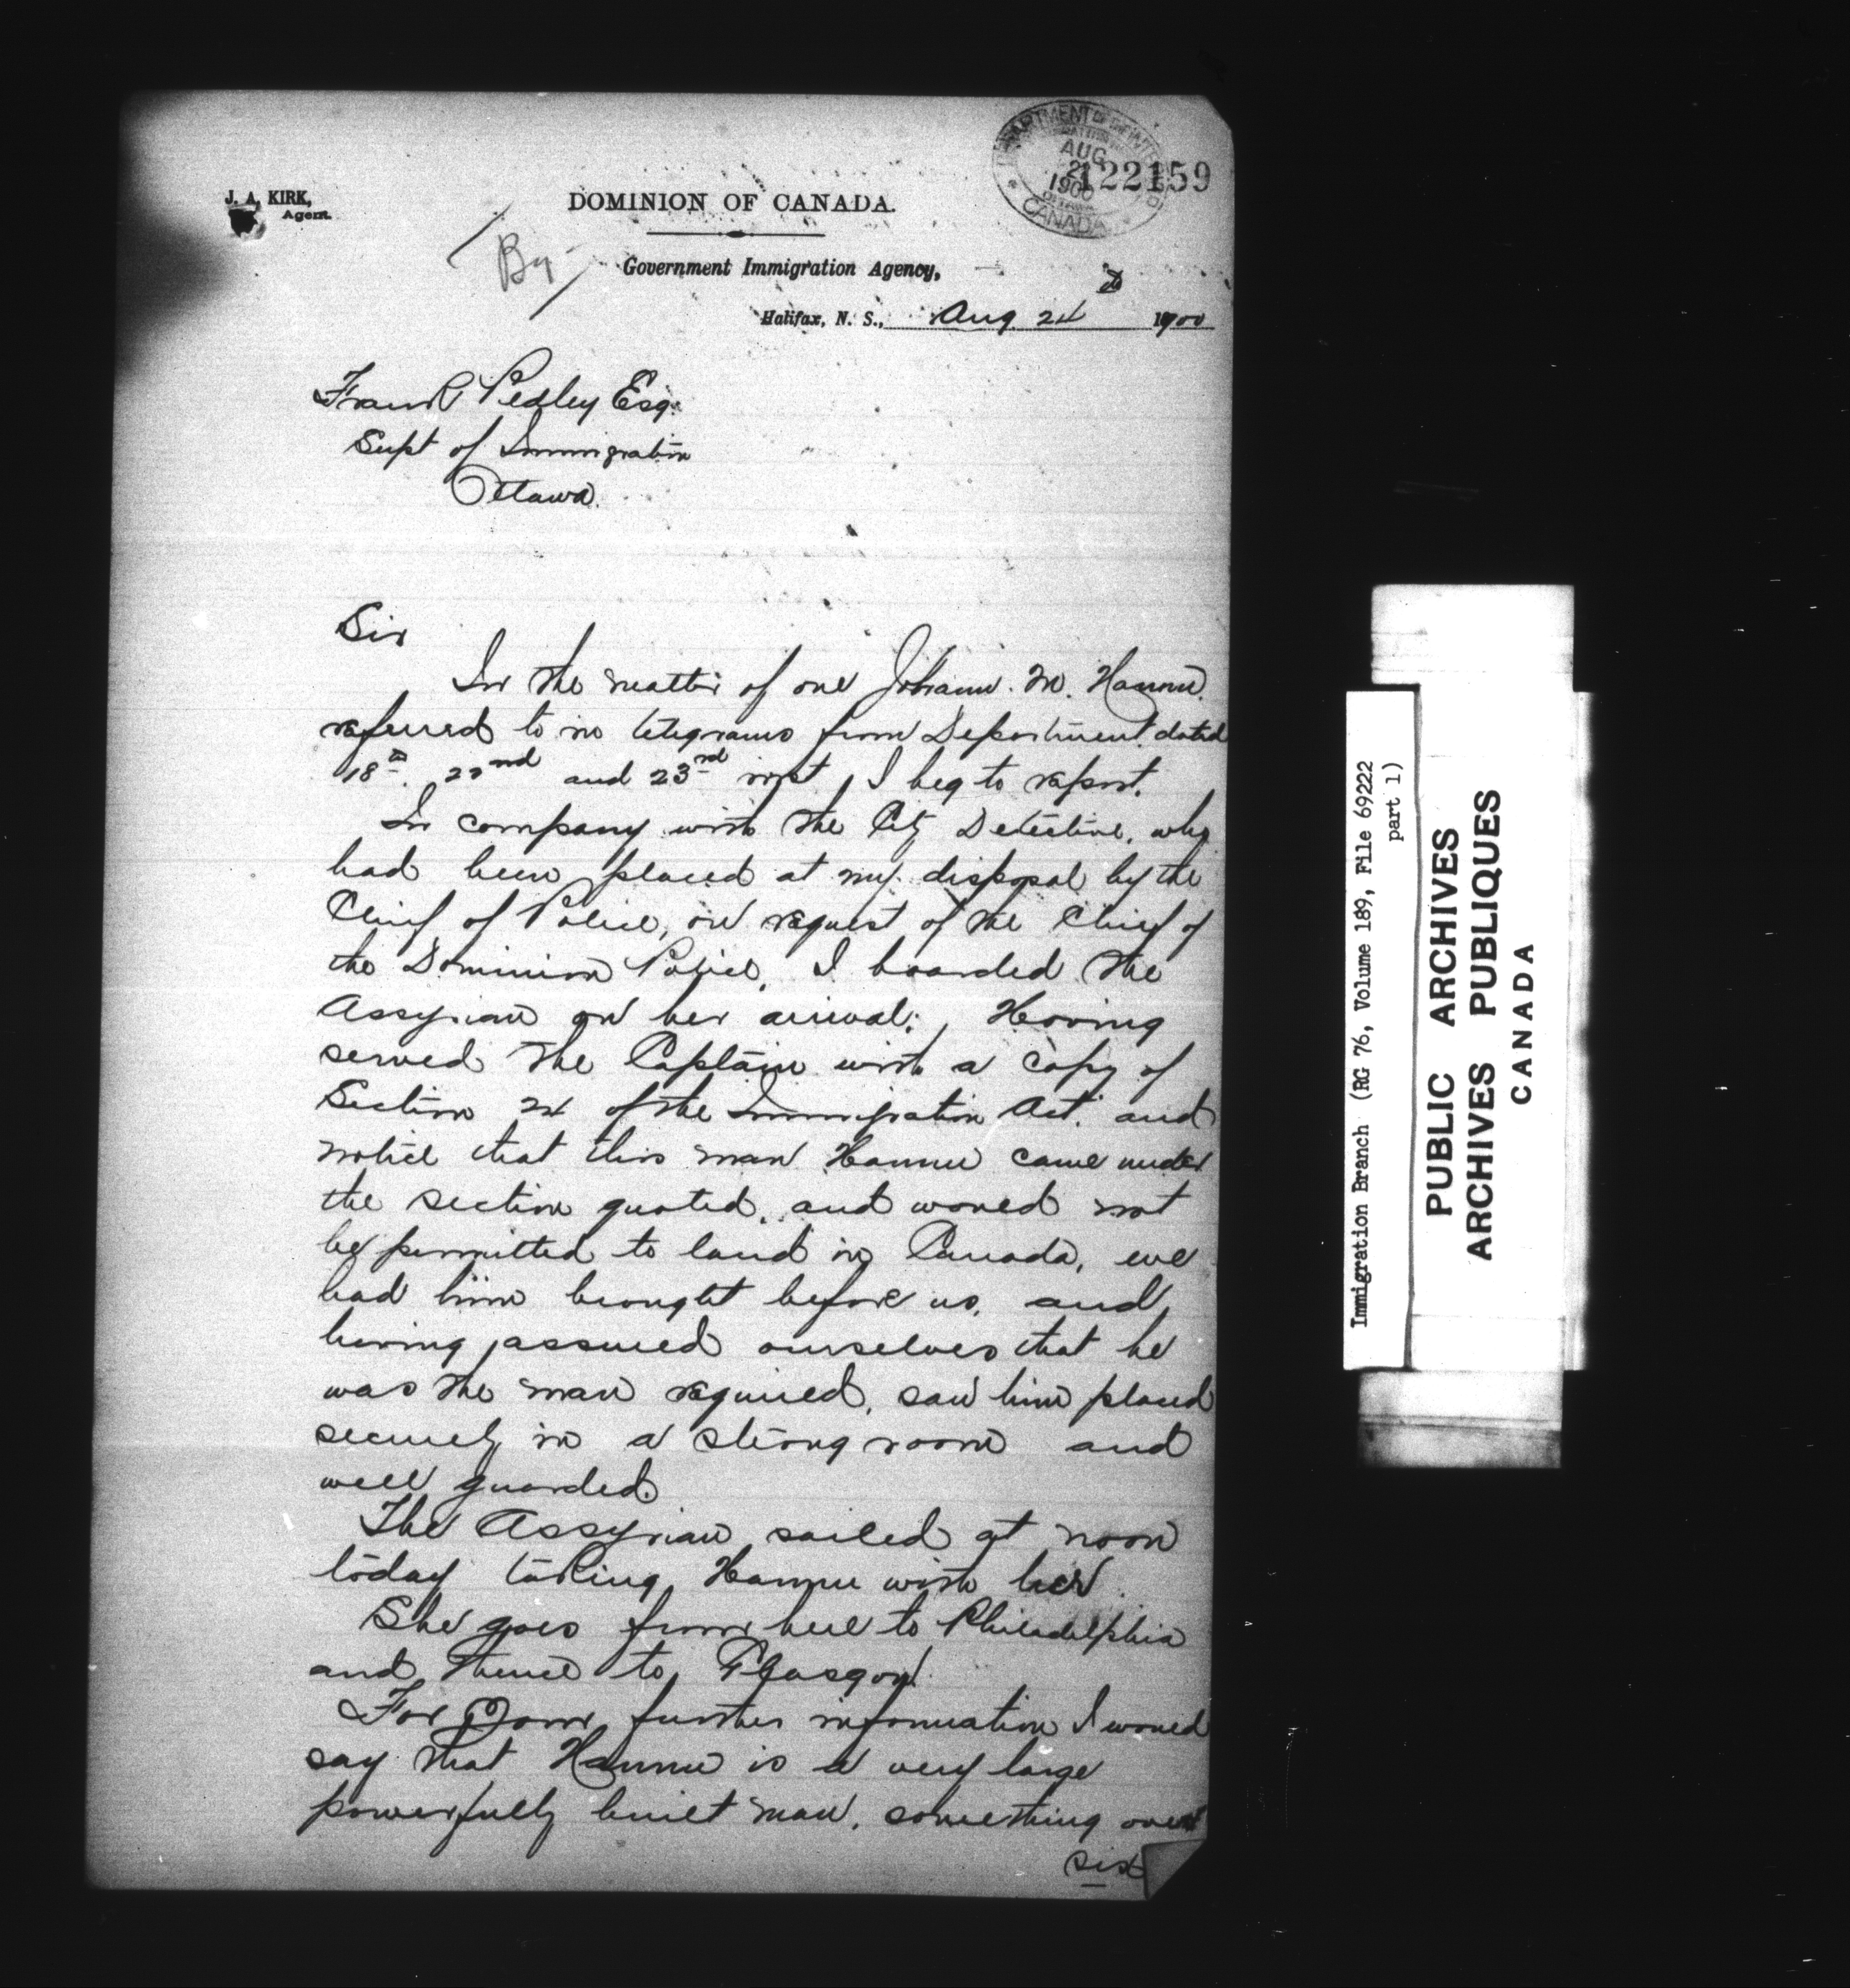 J. A. KIRK,
Agent.
DOMINION OF CANADA.
DEPARTMENT OF THE INTERIOR
AUG
1900
OTTAWA
CANADA
122159
Government Immigration Agency,
Halifax, N. S., Aug 24 1900
Frank Pedley Esq.
Supt of Immigration
Ottawa.
Sir
In the matter of one Johann. M. Hannu.
referred to in telegrams from Department dated
18th. 22nd and 23rd inst, I beg to report.
In company with the City Detective, who
had been placed at my disposal by the
Chief of Police, on request of the Chief of
the Dominion Police, I boarded the
Assyrian on her arrival; Having
served the Captain with a copy of
Section 24 of the Immigration Act. and
notice that this man Hannu came under
the section quoted, and would not
be permitted to land in Canada, we
had him brought before us, and
having assured ourselves that he
was the man required, saw him placed
securely in a strong room and
well guarded.
The Assyrian sailed at noon
today taking Hannu with her.
She goes from here to Philadelphia
and thence to Glasgow.
For your further information I would
say that Hannu is a very large
powerfully built man, something over
six
Immigration Branch (RG 76, Volume 189, File 69222
part 1)
PUBLIC ARCHIVES
ARCHIVES PUBLIQUES
CANADA